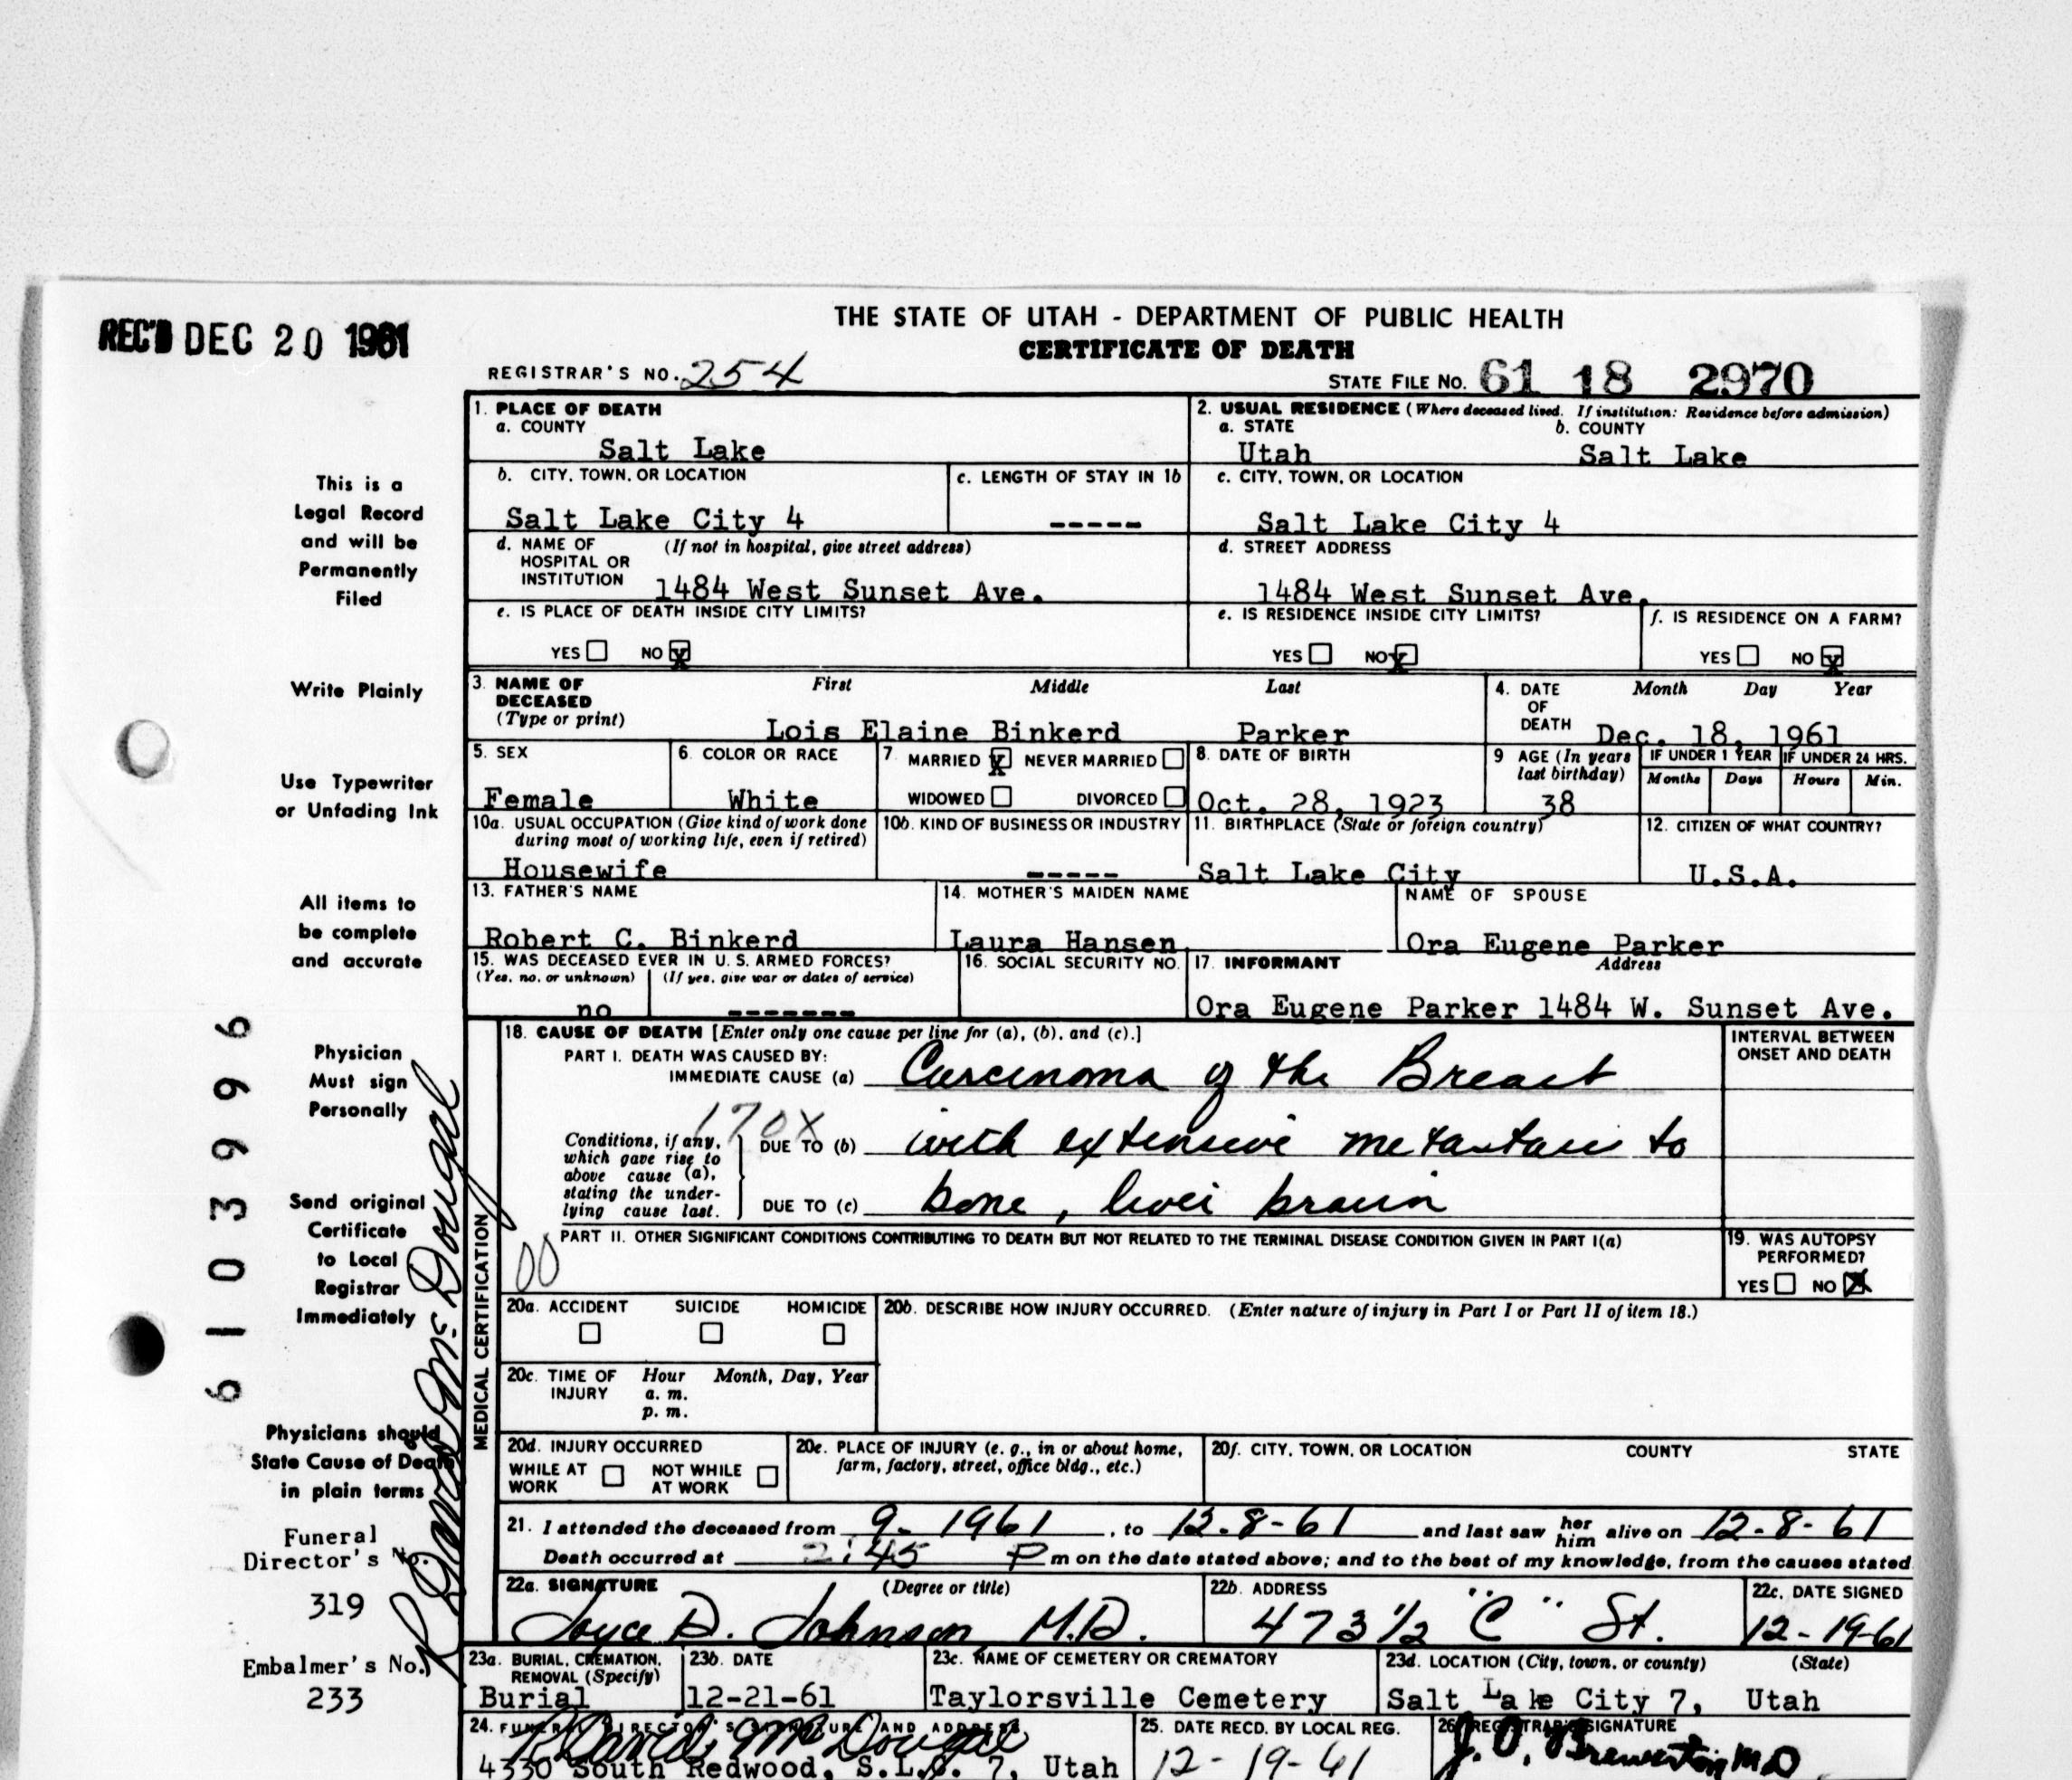 REC'D DEC 20 1961
THE STATE OF UTAH - DEPARTMENT OF PUBLIC HEALTH
CERTIFICATE OF DEATH
REGISTRAR'S NO. 254
STATE FILE NO. 61 18 2970
1. PLACE OF DEATH
a. COUNTY
Salt Lake
2. USUAL RESIDENCE (Where deceased lived. If institution: Residence before admission)
a. STATE b. COUNTY
Utah Salt Lake
b. CITY, TOWN, OR LOCATION
Salt Lake City 4
c. LENGTH OF STAY IN 1b
-----
c. CITY, TOWN, OR LOCATION
Salt Lake City 4
d. NAME OF (If not in hospital, give street address)
HOSPITAL OR
INSTITUTION 1484 West Sunset Ave.
d. STREET ADDRESS
1484 West Sunset Ave.
e. IS PLACE OF DEATH INSIDE CITY LIMITS?
YES NO X
e. IS RESIDENCE INSIDE CITY LIMITS?
YES NO X
f. IS RESIDENCE ON A FARM?
YES NO X
3. NAME OF DECEASED (Type or print)
First Middle Last
Lois Elaine Binkerd Parker
4. DATE OF DEATH
Month Day Year
Dec. 18, 1961
5. SEX
Female
6. COLOR OR RACE
White
7. MARRIED X NEVER MARRIED
WIDOWED DIVORCED
8. DATE OF BIRTH
Oct. 28, 1923
9 AGE (In years last birthday)
38
IF UNDER 1 YEAR
Months Days
IF UNDER 24 HRS.
Hours Min.
10a. USUAL OCCUPATION (Give kind of work done
during most of working life, even if retired)
Housewife
10b. KIND OF BUSINESS OR INDUSTRY
-----
11. BIRTHPLACE (State or foreign country)
Salt Lake City
12. CITIZEN OF WHAT COUNTRY?
U.S.A.
13. FATHER'S NAME
Robert C. Binkerd
14. MOTHER'S MAIDEN NAME
Laura Hansen
NAME OF SPOUSE
Ora Eugene Parker
15. WAS DECEASED EVER IN U.S. ARMED FORCES?
(Yes, no, or unknown) (If yes, give war or dates of service)
no -------
16. SOCIAL SECURITY NO.
17. INFORMANT Address
Ora Eugene Parker 1484 W. Sunset Ave.
MEDICAL CERTIFICATION
18. CAUSE OF DEATH [Enter only one cause per line for (a), (b), and (c).]
PART I. DEATH WAS CAUSED BY:
IMMEDIATE CAUSE (a) Carcinoma of the Breast
170X
Conditions, if any,
which gave rise to
above cause (a),
stating the under-
lying cause last.
DUE TO (b) with extensive metastasis to
DUE TO (c) bone, liver brain
INTERVAL BETWEEN
ONSET AND DEATH
PART II. OTHER SIGNIFICANT CONDITIONS CONTRIBUTING TO DEATH BUT NOT RELATED TO THE TERMINAL DISEASE CONDITION GIVEN IN PART I(a)
00
19. WAS AUTOPSY
PERFORMED?
YES NO X
20a. ACCIDENT SUICIDE HOMICIDE
20b. DESCRIBE HOW INJURY OCCURRED. (Enter nature of injury in Part I or Part II of item 18.)
20c. TIME OF INJURY
Hour Month, Day, Year
a. m.
p. m.
20d. INJURY OCCURRED
WHILE AT WORK NOT WHILE AT WORK
20e. PLACE OF INJURY (e. g., in or about home,
farm, factory, street, office bldg., etc.)
20f. CITY, TOWN, OR LOCATION COUNTY STATE
21. I attended the deceased from 9- 1961, to 12-8-61 and last saw her him alive on 12-8-61
Death occurred at 2:45 P m on the date stated above; and to the best of my knowledge, from the causes stated.
22a. SIGNATURE (Degree or title)
Joyce D. Johnson, M.D.
22b. ADDRESS
473 1/2 "C" St.
22c. DATE SIGNED
12-19-61
23a. BURIAL, CREMATION,
REMOVAL (Specify)
Burial
23b. DATE
12-21-61
23c. NAME OF CEMETERY OR CREMATORY
Taylorsville Cemetery
23d. LOCATION (City, town, or county) (State)
Salt Lake City 7, Utah
24. FUNERAL DIRECTOR'S SIGNATURE AND ADDRESS
R David McDougal
4330 South Redwood, S.L.C. 7, Utah
25. DATE RECD. BY LOCAL REG.
12-19-61
26. REGISTRAR'S SIGNATURE
J. O. Brewerton MD
This is a
Legal Record
and will be
Permanently
Filed
Write Plainly
Use Typewriter
or Unfading Ink
All items to
be complete
and accurate
Physician
Must sign
Personally
Send original
Certificate
to Local
Registrar
Immediately
Physicians should
State Cause of Death
in plain terms
Funeral
Director's No.
319
Embalmer's No.
233
6103996
R David McDougal